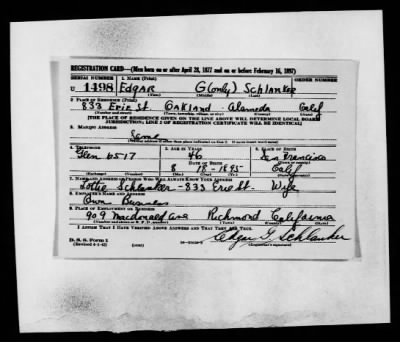 REGISTRATION CARD—(Men born on or after April 28, 1877 and on or before February 16, 1897)
SERIAL NUMBER 1. NAME (Print) ORDER NUMBER
U 1498 EDGAR G(only) Schlanker
(First) (Middle) (Last)
2. PLACE OF RESIDENCE (Print)
833 Erie St. Oakland Alameda Calif
(Number and street) (Town, township, village, or city) (County) (State)
[THE PLACE OF RESIDENCE GIVEN ON THE LINE ABOVE WILL DETERMINE LOCAL BOARD
JURISDICTION; LINE 2 OF REGISTRATION CERTIFICATE WILL BE IDENTICAL]
3. MAILING ADDRESS
Same
4. TELEPHONE 5. AGE IN YEARS 6. PLACE OF BIRTH
Glen 6517 46 San Francisco
DATE OF BIRTH
8 18 - 1895 Calif
7. NAME AND ADDRESS OF PERSON WHO WILL ALWAYS KNOW YOUR ADDRESS
Lottie Schlanker - 833 Erie St. Wife
8. EMPLOYER'S NAME AND ADDRESS
Own Business
9. PLACE OF EMPLOYMENT OR BUSINESS
909 Macdonald Ave Richmond California
(Number and street or R. F. D. number) (Town) (County) (State)
I AFFIRM THAT I HAVE VERIFIED ABOVE ANSWERS AND THAT THEY ARE TRUE.
D. S. S. Form 1 Edgar G. Schlanker
(Revised 4-1-42) (Registrant's signature)